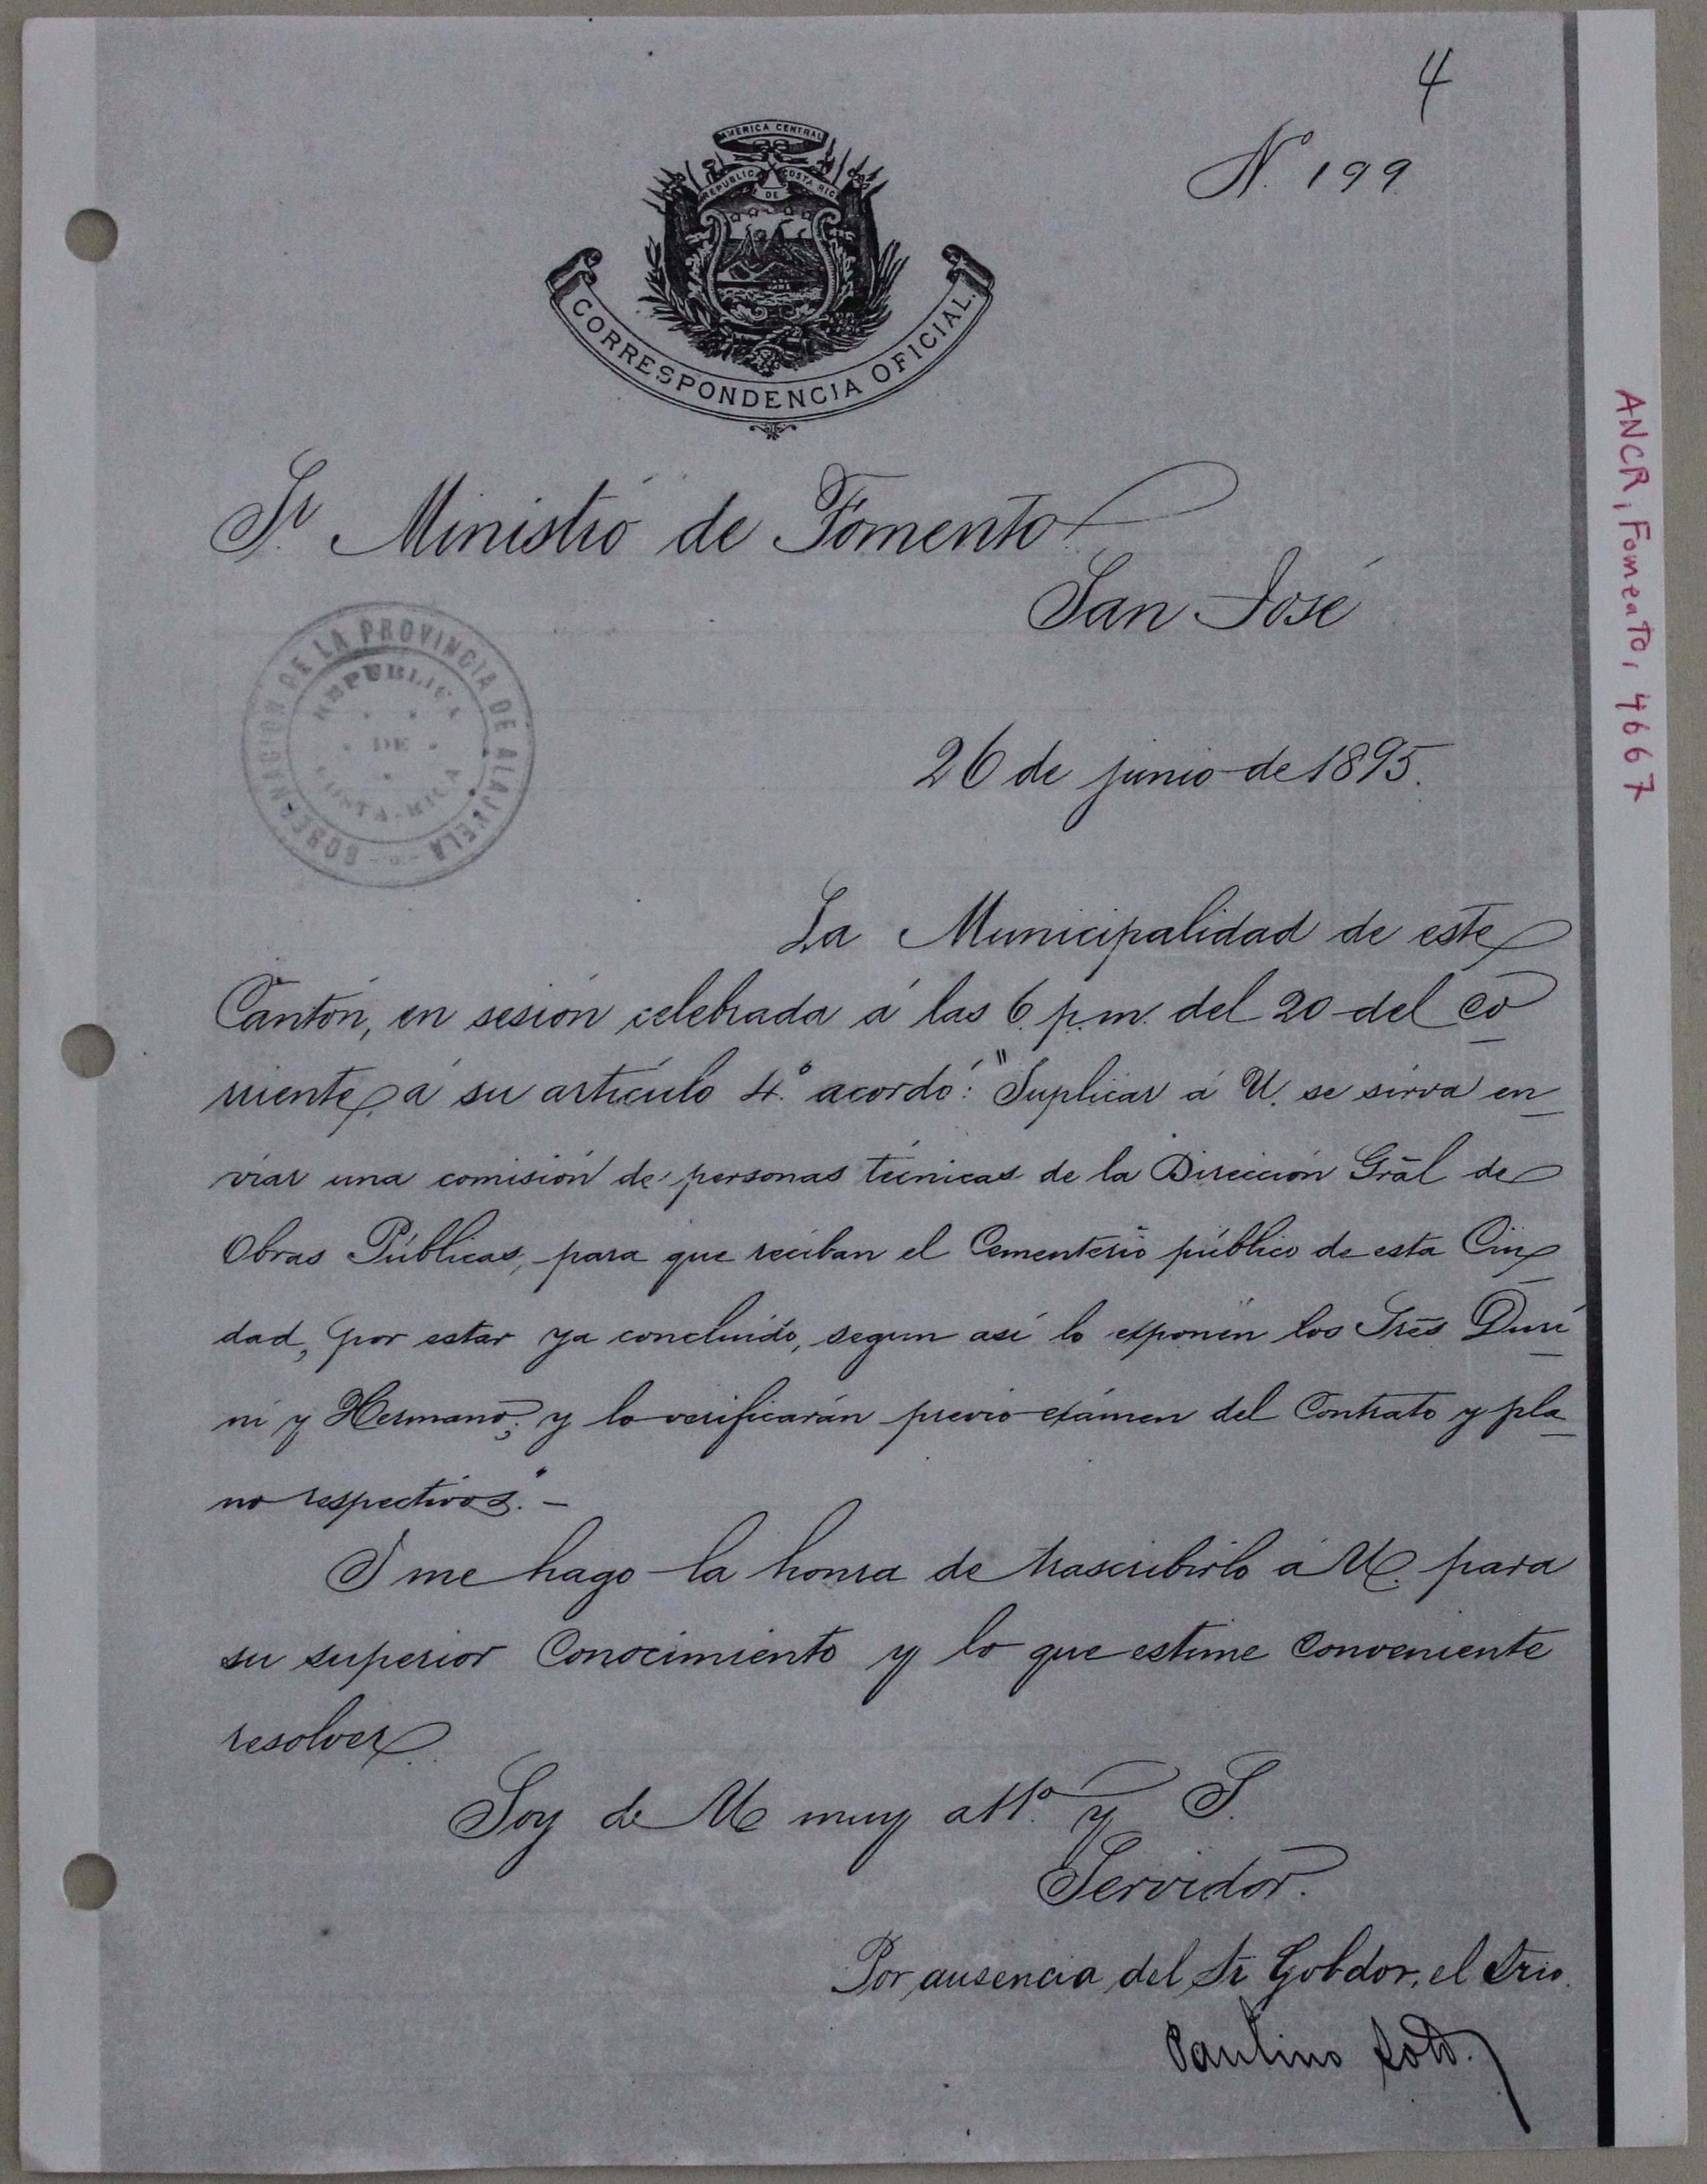 4
N. 199
AMERICA CENTRAL
REPUBLICA DE COSTA RICA
CORRESPONDENCIA OFICIAL.
Sr. Ministro de Fomento
San José
GOBERNACION DE LA PROVINCIA DE ALAJUELA
REPUBLICA
DE
COSTA-RICA
26 de junio de 1895.
La Municipalidad de este
Cantón, en sesión celebrada á las 6. p.m. del 20 del co
rriente, á su artículo 4.º acordó: "Suplicar á U. se sirva en
viar una comisión de personas técnicas de la Dirección Gral de
Obras Públicas, para que reciban el Cementerio público de esta Ciu
dad, por estar ya concluido, segun así lo exponen los Sres Duri
ni y Hermano; y lo verificarán previo exámen del Contrato y pla
no respectivos." -
I me hago la honra de trascribirlo á U. para
su superior Conocimiento y lo que estime Conveniente
resolver.
Soy de U. muy atto. y S.
Servidor.
Por ausencia del Sr Gobdor, el Srio.
Paulino Soto.
ANCR, Fomento, 4667